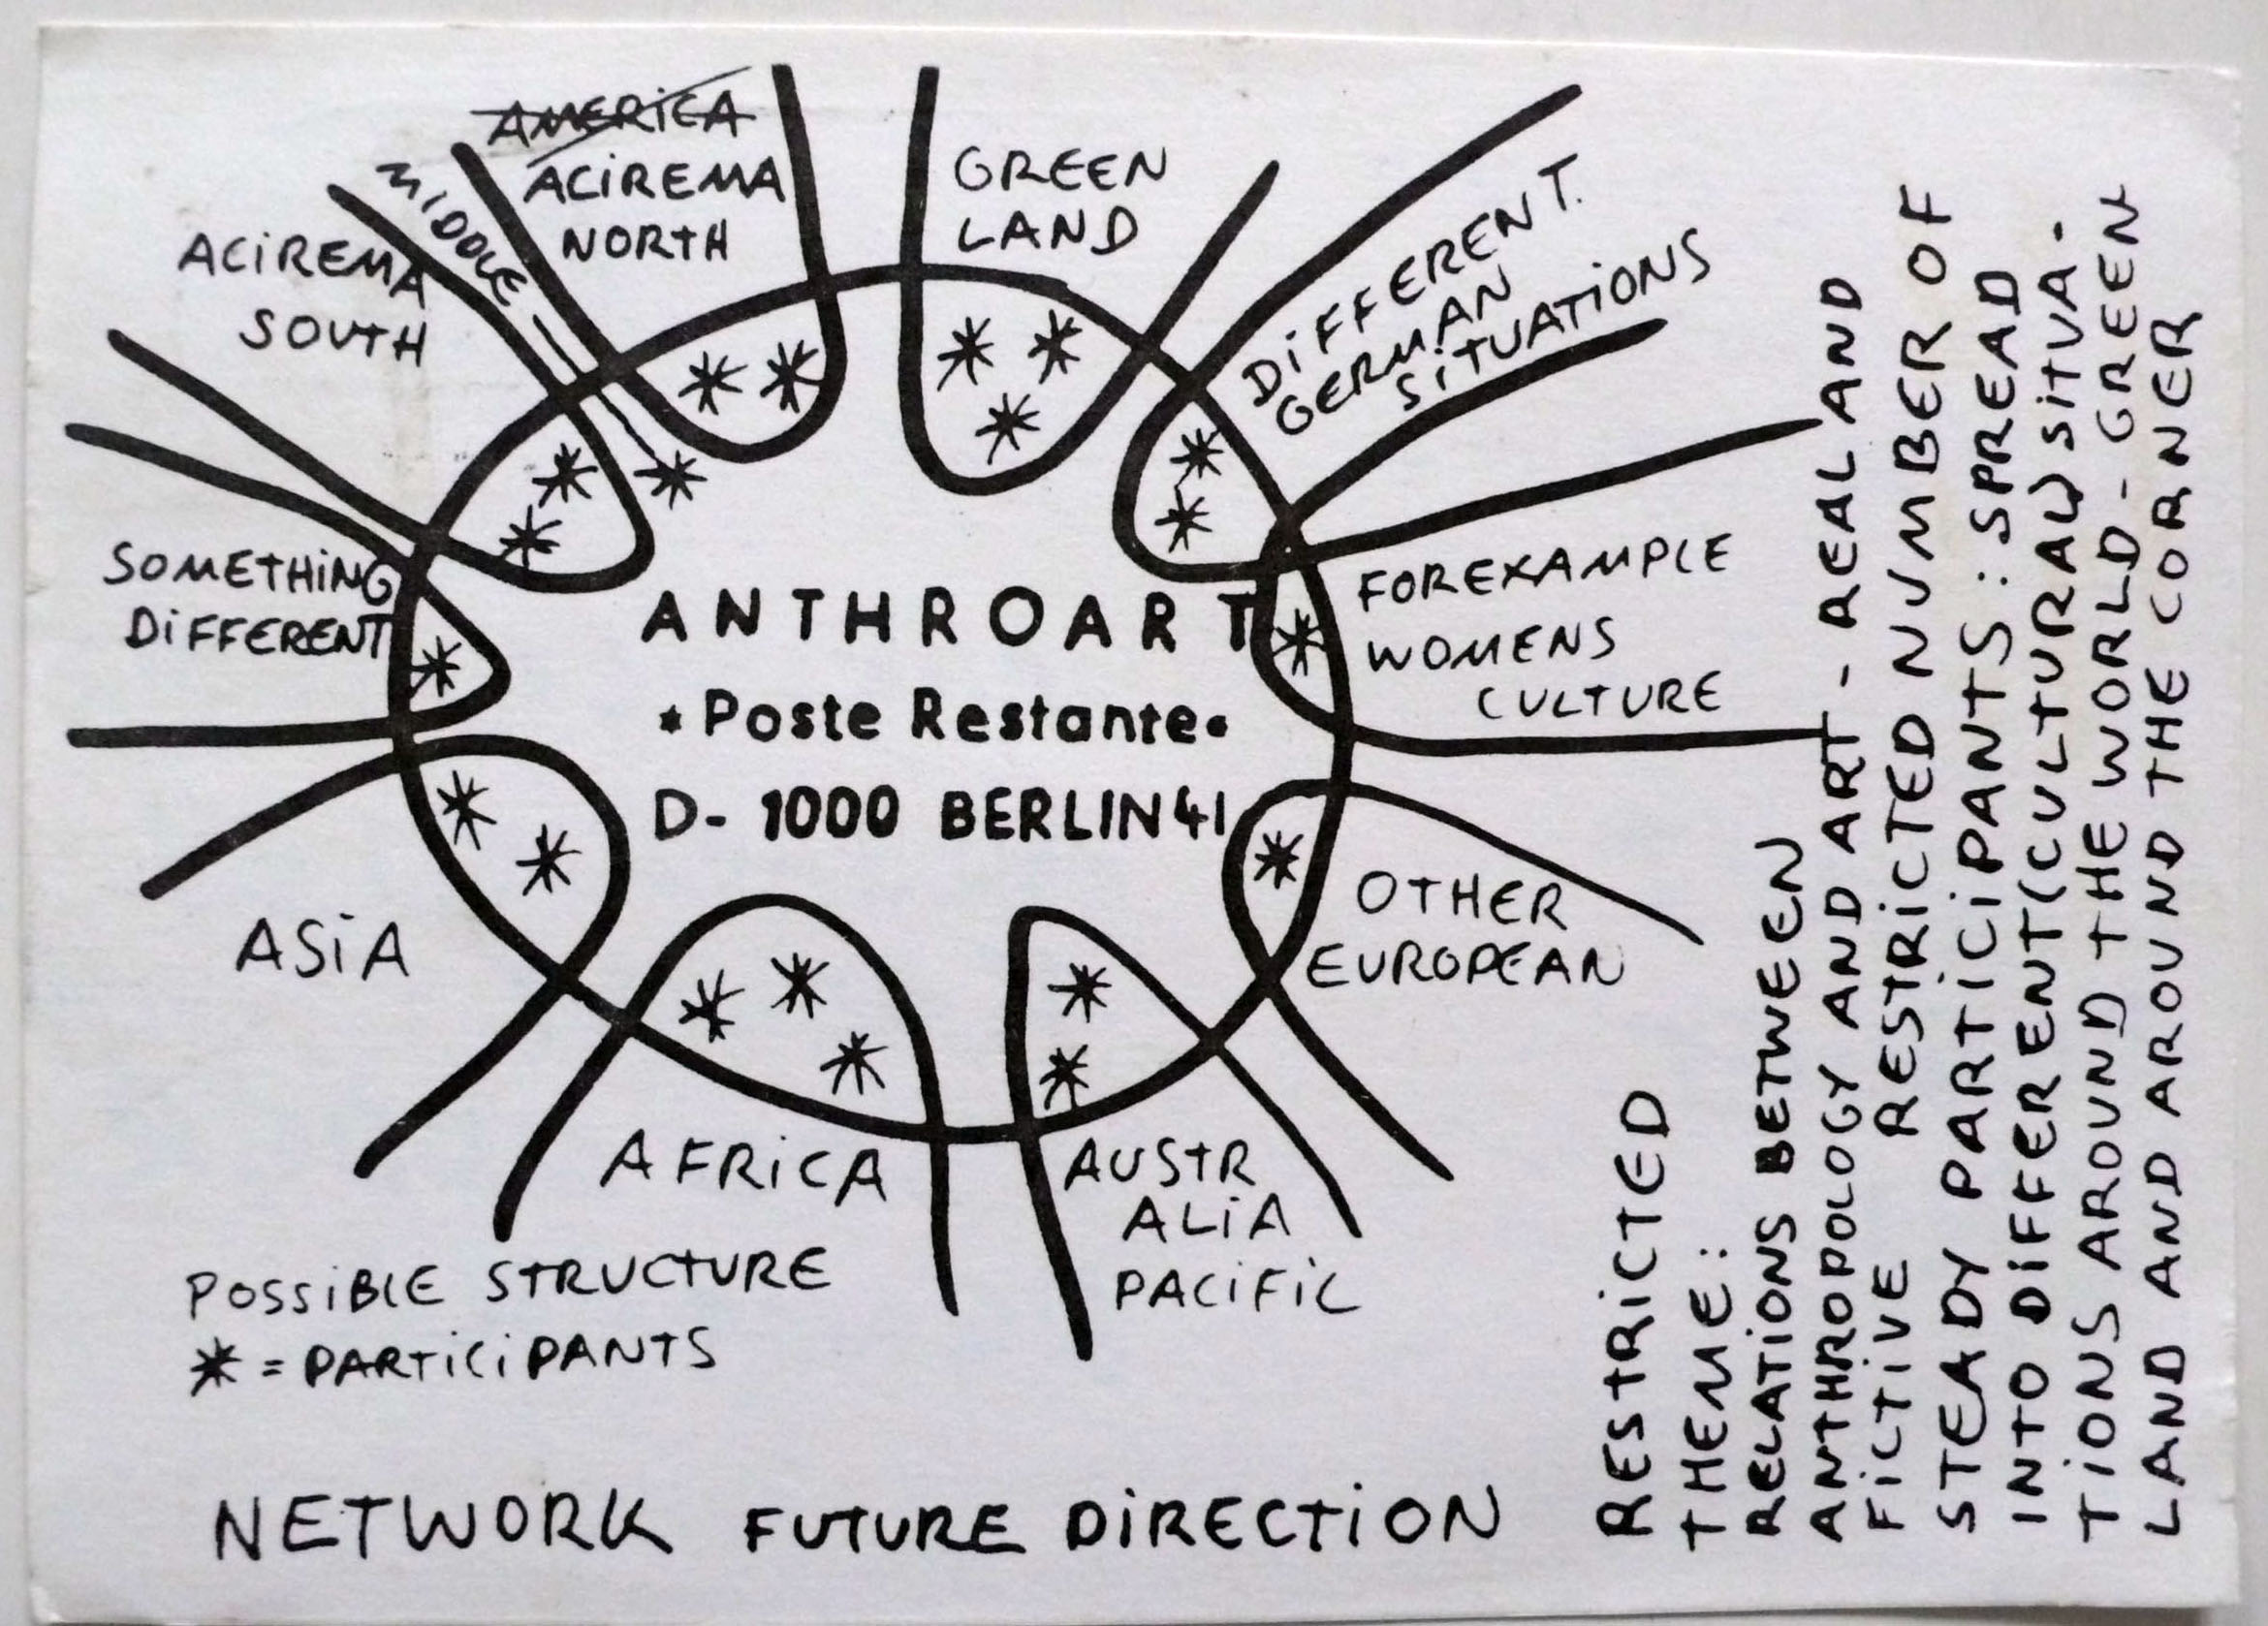 AMERICA
ACIREMA
NORTH
MIDDLE
ACIREMA
SOUTH
GREEN
LAND
DIFFERENT.
GERMAN
SITUATIONS
SOMETHING
DIFFERENT
FOREXAMPLE
WOMENS
CULTURE
ANTHROART
• Poste Restante•
D- 1000 BERLIN 41
OTHER
EUROPEAN
ASIA
AFRICA
AUSTR
ALIA
PACIFIC
POSSIBLE STRUCTURE
* = PARTICIPANTS
NETWORK FUTURE DIRECTION
RESTRICTED
THEME:
RELATIONS BETWEEN
ANTHROPOLOGY AND ART - REAL AND
FICTIVE RESTRICTED NUMBER OF
STEADY PARTICIPANTS : SPREAD
INTO DIFFERENT(CULTURAL) SITUA-
TIONS AROUND THE WORLD - GREEN
LAND AND AROUND THE CORNER